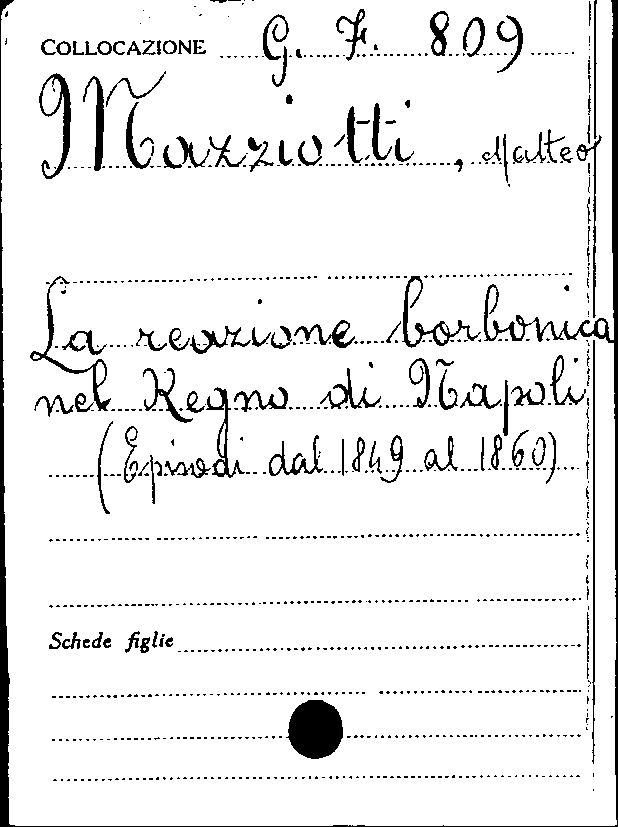 COLLOCAZIONE G. F. 809
Mazziotti, Matteo
La reazione borbonica
nel Regno di Napoli
(Episodi dal 1849 al 1860)
Schede figlie